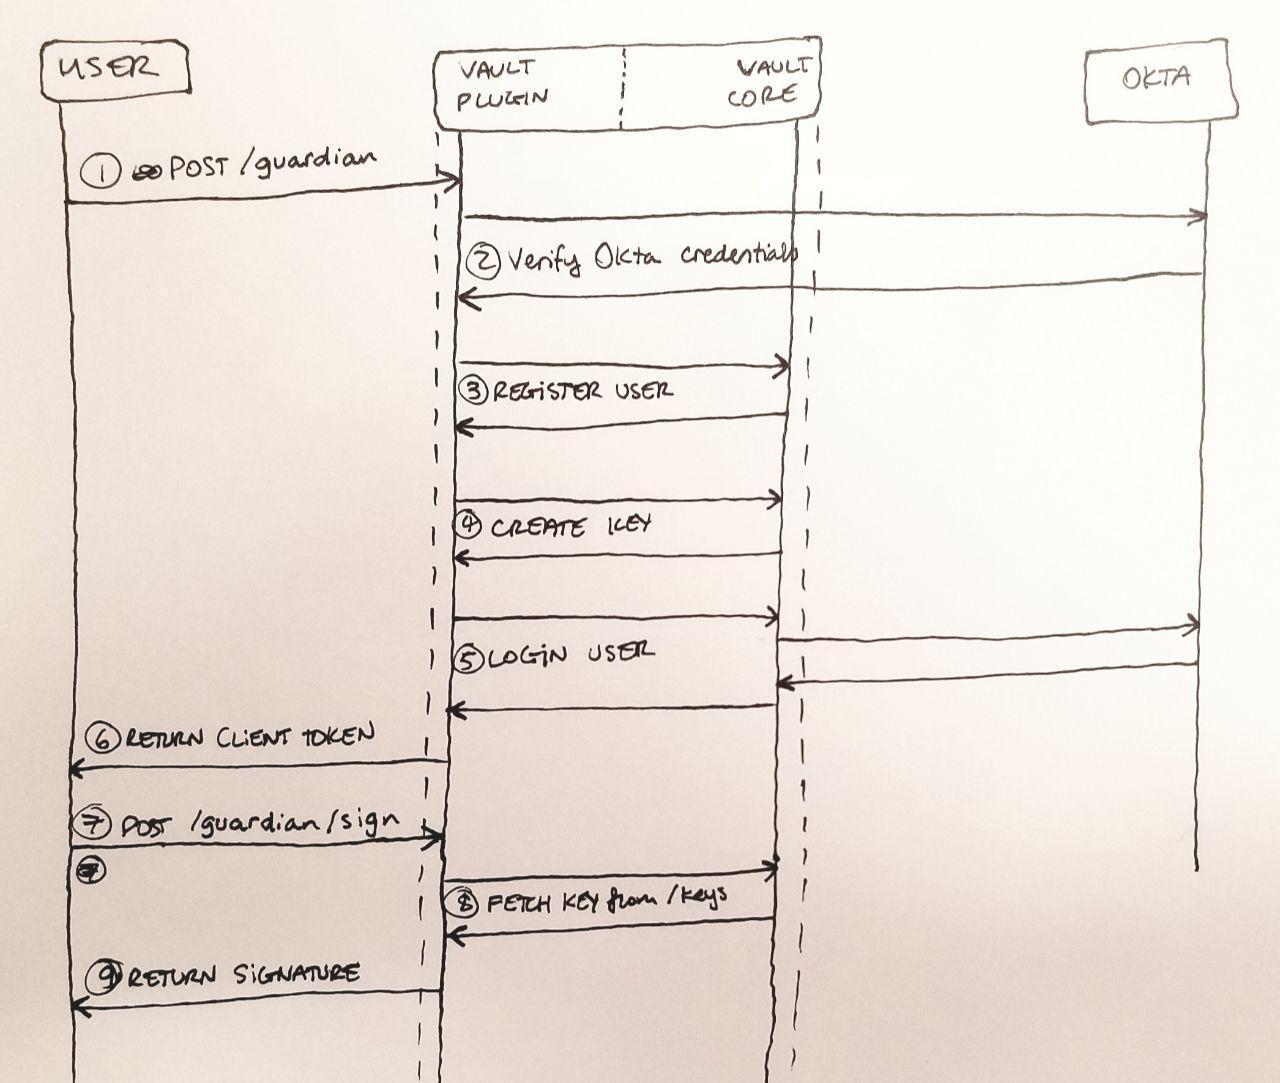 USER
VAULT
PLUGIN
VAULT
CORE
OKTA
1 POST /guardian
2 Verify Okta credentials
3 REGISTER USER
4 CREATE KEY
5 LOGIN USER
6 RETURN CLIENT TOKEN
7 POST /guardian/sign
8 FETCH KEY from /keys
9 RETURN SIGNATURE